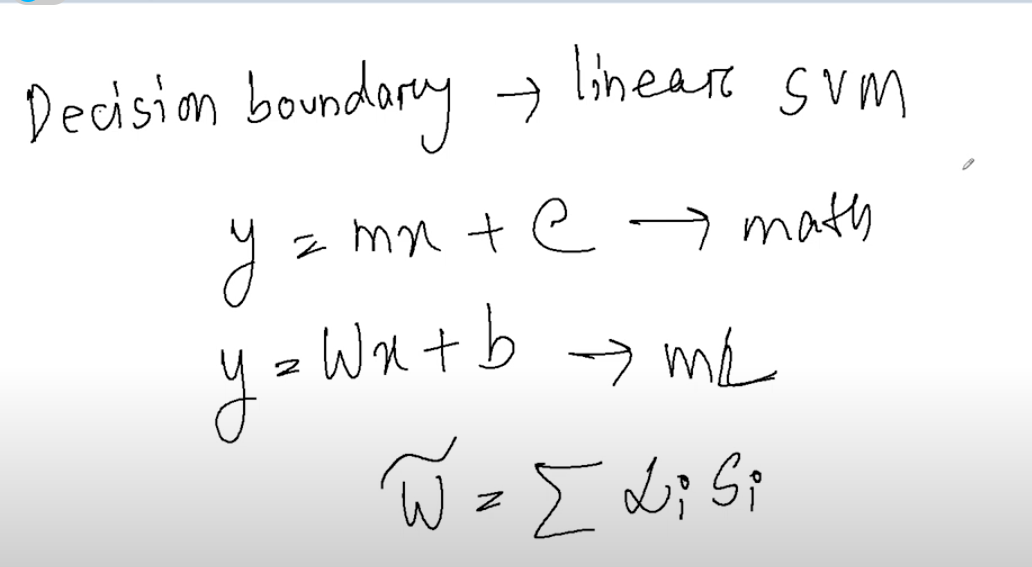 Decision boundary → linear SVM
y = mx + c → math
y = Wx + b → ML
W̃ = Σ αi Si